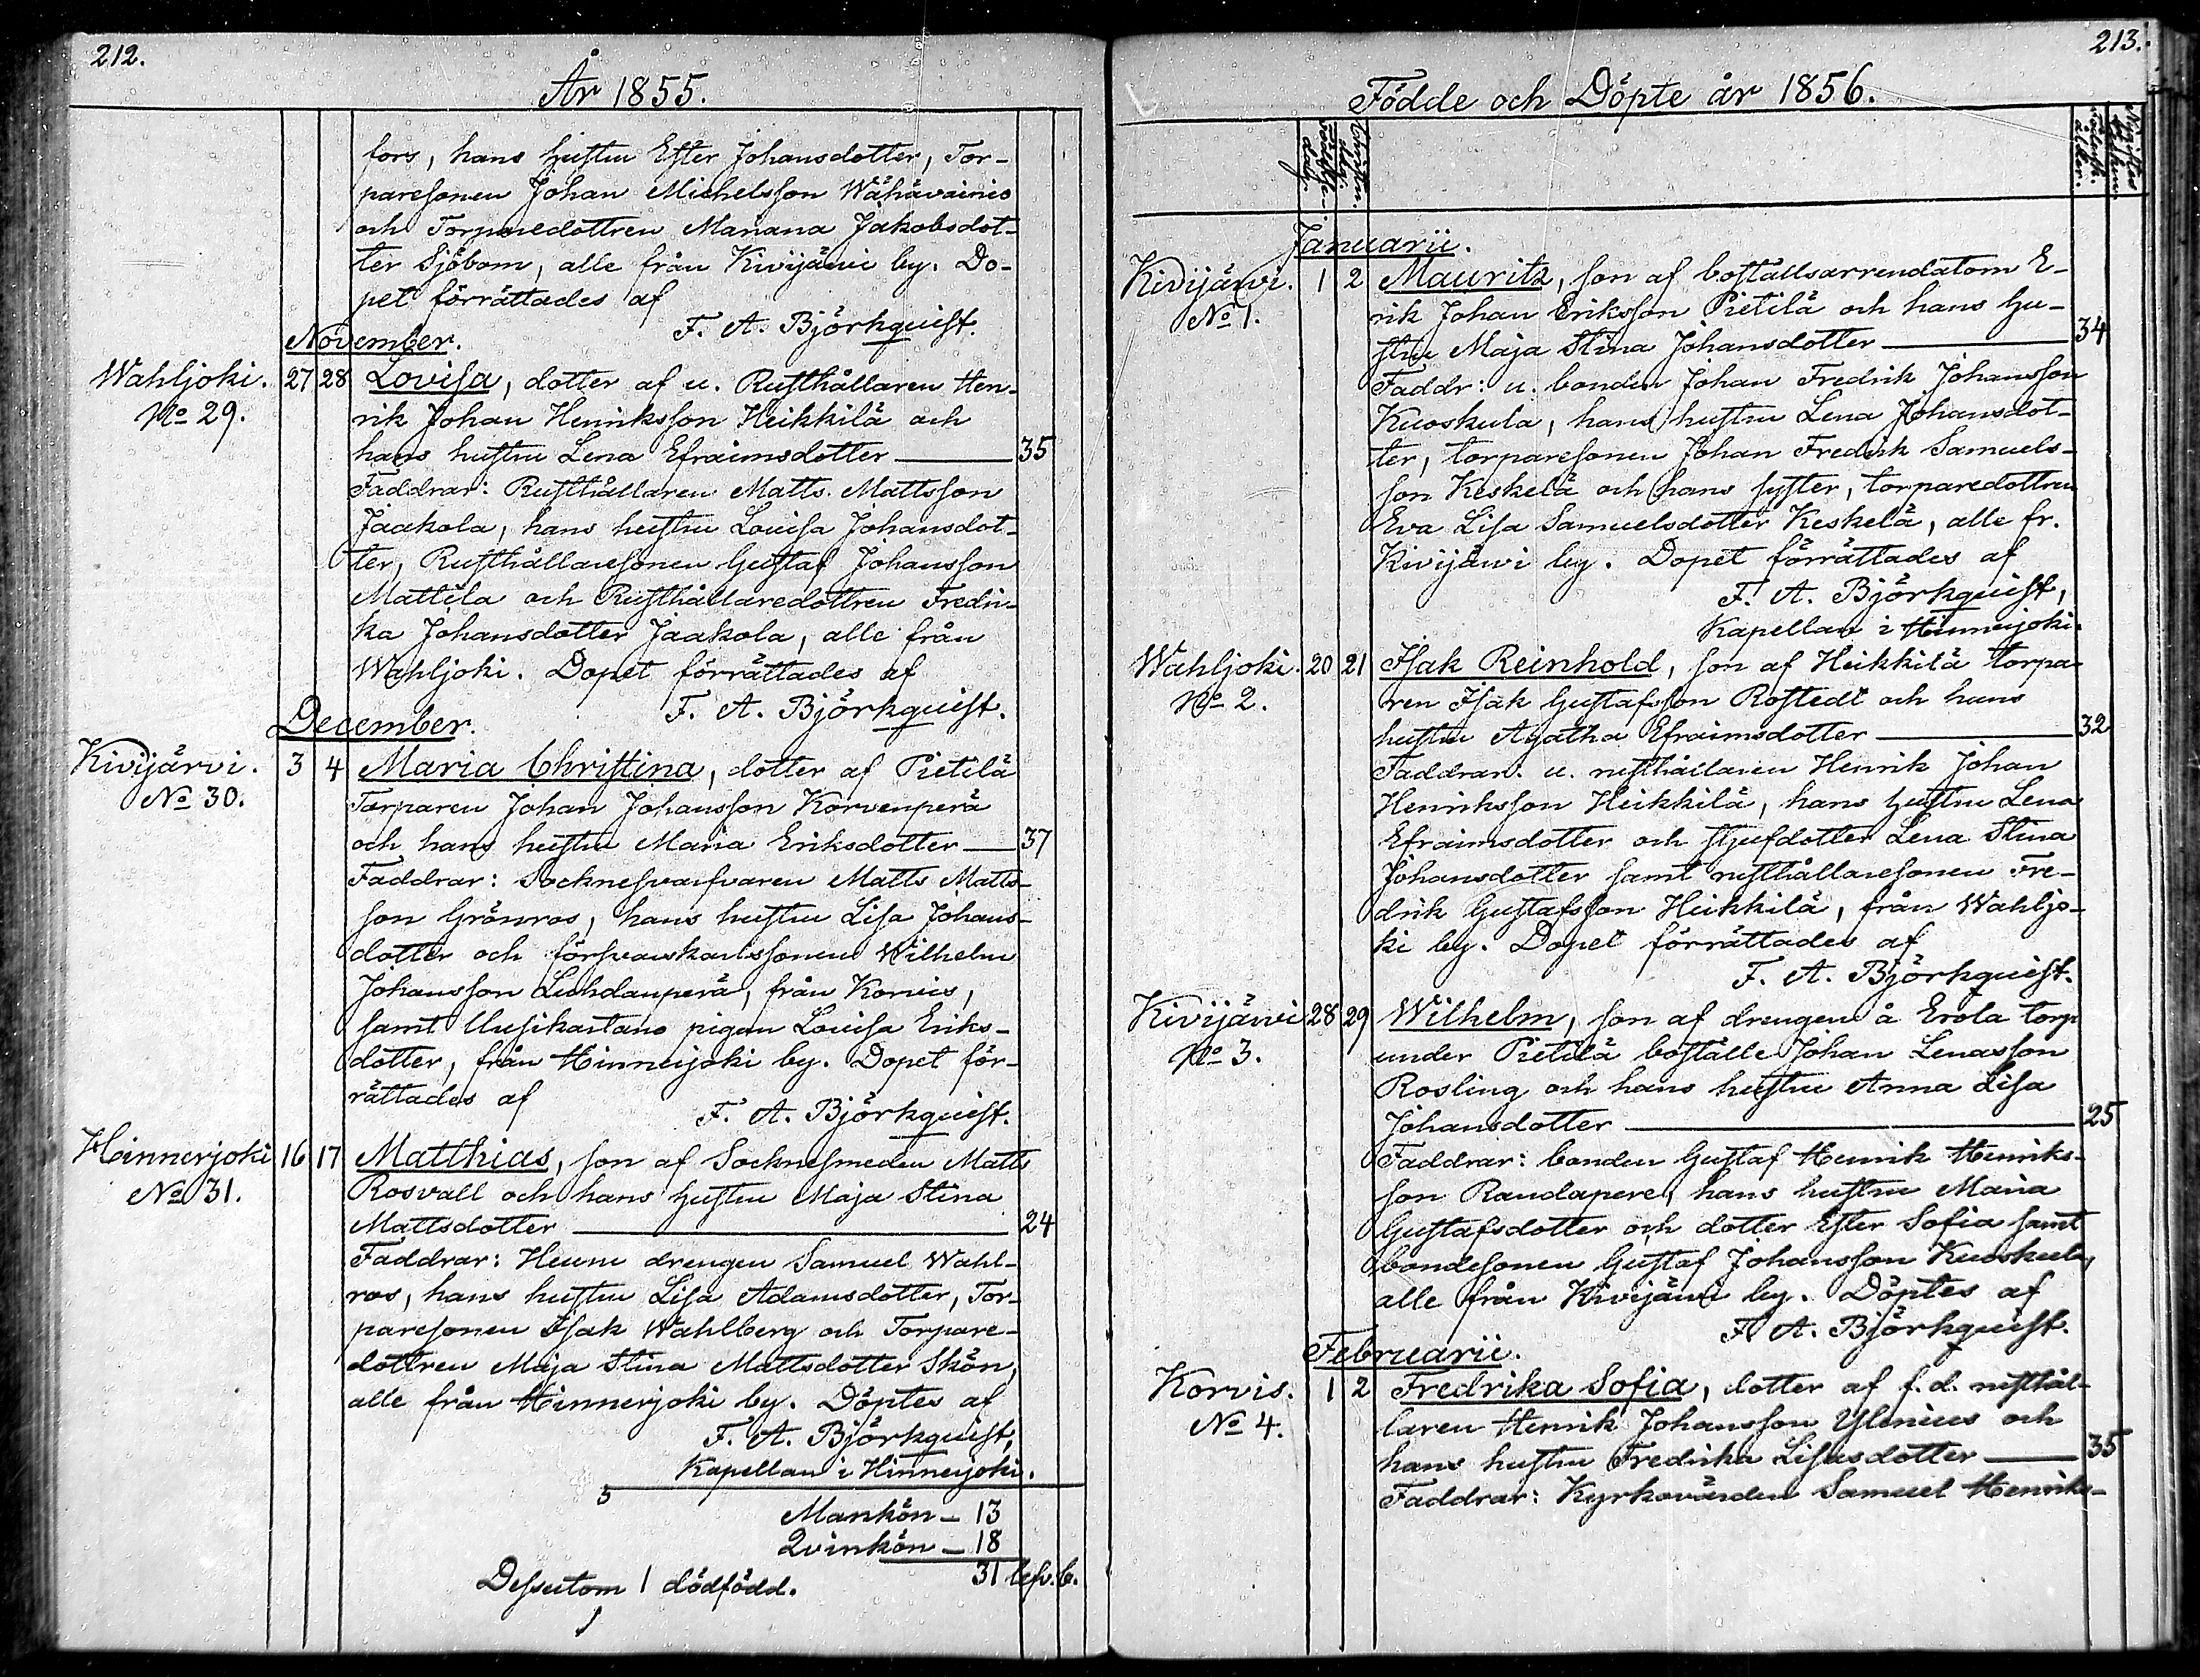 212.
År 1855.
fors, hans hustru Ester Johansdotter, Tor-
paresonen Johan Michelsson Wähävainio
och Torparedottren Mariana Jakobsdot-
ter Sjöbom, alle från Kivijärvi by. Do-
pet förrättades af
F. A. Björkquist.
November.
Wahljoki. 27 28 Lovisa, dotter af u. Rusthållaren Hen-
No 29. rik Johan Henriksson Heikkilä och
hans hustru Lena Efraimsdotter 35
Faddrar: Rusthållaren Matts Mattsson
Jaakola, hans hustru Lovisa Johansdot-
ter, Rusthållaresonen Gustaf Johansson
Mattila och Rusthållaredottren Fredri-
ka Johansdotter Jaakola, alle från
Wahljoki. Dopet förrättades af
F. A. Björkquist.
December.
Kivijärvi. 3 4 Maria Christina, dotter af Pietilä
No 30. Torparen Johan Johansson Korvenperä
och hans hustru Maria Eriksdotter 37
Faddrar: Socknesvarfvaren Matts Matts-
son Grönroos, hans hustru Lisa Johans-
dotter och försvarskarlssonen Wilhelm
Johansson Luhdanperä, från Korvis,
samt Uusikartano pigan Lovisa Eriks-
dotter, från Hinnerjoki by. Dopet för-
rättades af
F. A. Björkquist.
Hinnerjoki 16 17 Matthias, son af Socknesmeden Matts
No 31. Rosvall och hans hustru Maja Stina
Mattsdotter 24
Faddrar: drengen Samuel Wahl-
ros, hans hustru Lisa Adamsdotter, Tor-
paresonen Isak Wahlberg och Torpare-
dottren Maja Stina Mattsdotter Skön,
alle från Hinnerjoki by. Döptes af
F. A. Björkquist,
Kapellan i Hinnerjoki.
Mankön – 13
Qvinkön – 18
31 lefv. b.
Dessutom 1 dödfödd.
213.
Födde och Döpte år 1856.
Januarii.
Kivijärvi. 1 2 Mauritz, son af boställsarrendatorn E-
No 1. rik Johan Eriksson Pietilä och hans hu-
stru Maja Stina Johansdotter 34
Faddr: u. bonden Johan Fredrik Johansson
Kuoskula, hans hustru Lena Johansdot-
ter, torparesonen Johan Fredrik Samuels-
son Keskelä och hans syster, torparedottren
Eva Lisa Samuelsdotter Keskelä, alle fr.
Kivijärvi by. Dopet förrättades af
F. A. Björkquist,
Kapellan i Hinnerjoki.
Wahljoki. 20 21 Isak Reinhold, son af Heikkilä torpa-
No 2. ren Isak Gustafsson Rostedt och hans
hustru Agatha Efraimsdotter 32
Faddrar: u. rusthållaren Henrik Johan
Henriksson Heikkilä, hans hustru Lena
Efraimsdotter och stjufdotter Lena Stina
Johansdotter samt rusthållaresonen Fre-
drik Gustafsson Heikkilä, från Wahljo-
ki by. Dopet förrättades af
F. A. Björkquist.
Kivijärvi 28 29 Wilhelm, son af drengen å Erola torp
No 3. under Pietilä boställe Johan Lenasson
Rosling och hans hustru Anna Lisa
Johansdotter 25
Faddrar: bonden Gustaf Henrik Henriks-
son Raudapere, hans hustru Maria
Gustafsdotter och dotter Ester Sofia samt
bondesonen Gustaf Johansson Kuoskula,
alle från Kivijärvi by. Döptes af
F. A. Björkquist.
Februarii.
Korvis. 1 2 Fredrika Sofia, dotter af f. d. rusthål-
No 4. laren Henrik Johansson Ylenius och
hans hustru Fredrika Lisasdotter 35
Faddrar: Kyrkovärden Samuel Henriks-